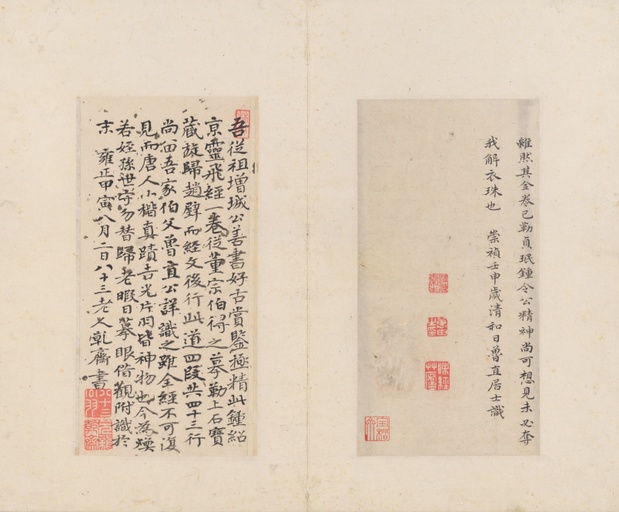 雖然其全卷已勒貞珉鍾令公精神尚可想見未必奪
我解衣珠也　崇禎壬申歲清和日魯直居士識
吾從祖增城公善書好古賞鑒極精此鍾紹
京靈飛經一卷從董宗伯得之摹勒上石寶
藏旋歸趙壁而經文後行此道四段共四十三行
尚留吾家伯父魯直公詳識之雖全經不可復
見而唐人小楷真蹟吉光片羽皆神物也今為
若姪孫世守勿替歸老暇日摹眼借觀附識於
末　雍正甲寅八月二日八十三老人乾齋書